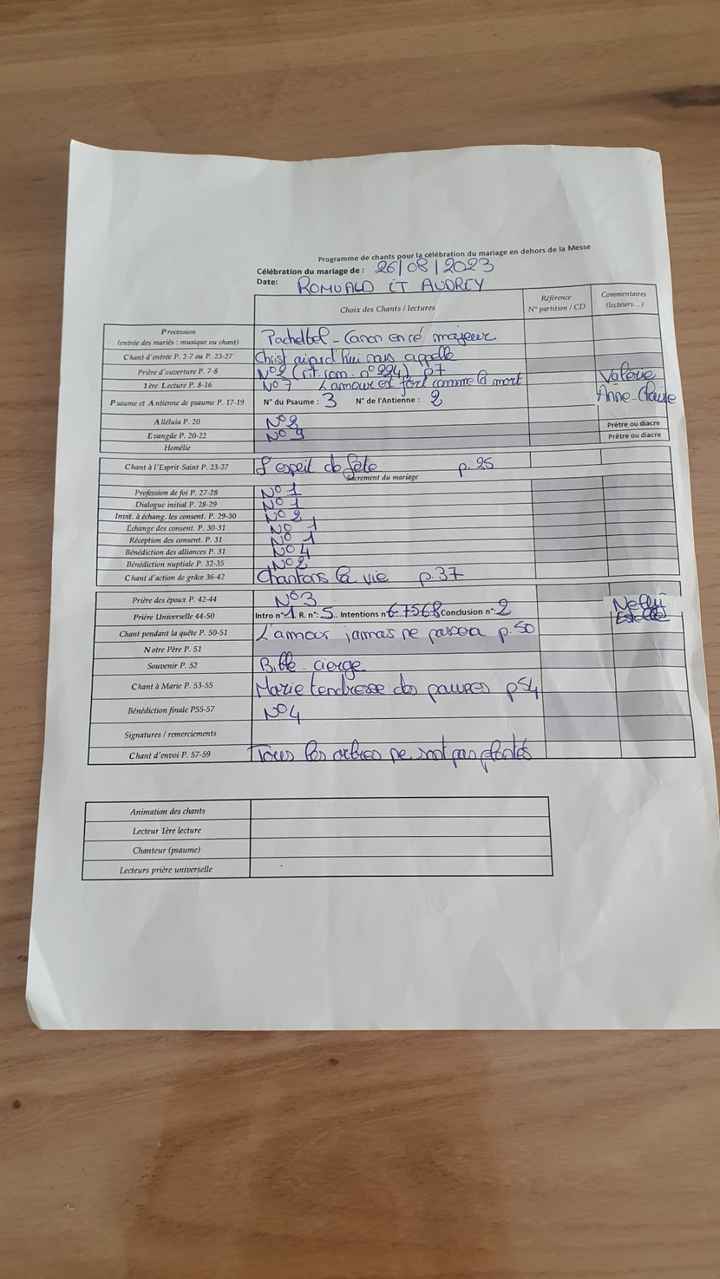 Programme de chants pour la célébration du mariage en dehors de la Messe
Célébration du mariage de : 26/08/2023
Date: ROMUALD ET AUDREY
Choix des Chants / lectures Référence N° partition / CD Commentaires (lecteurs...)
Procession (entrée des mariés : musique ou chant) Pachelbel - Canon en ré majeur
Chant d'entrée P. 2-7 ou P. 23-27 Christ aujourd'hui nous appelle
Prière d'ouverture P. 7-8 N°2 (rit rom. n°224) p7
1ère Lecture P. 8-16 N° 7 L'amour est fort comme la mort Valérie
Psaume et Antienne de psaume P. 17-19 N° du Psaume : 3 N° de l'Antienne : 2 Anne-Claire
Alléluia P. 20 N°2
Evangile P. 20-22 N° Prêtre ou diacre
Homélie Prêtre ou diacre
Chant à l'Esprit-Saint P. 23-27 L'esprit de fête p.25
Sacrement du mariage
Profession de foi P. 27-28 N°1
Dialogue initial P. 28-29 N°1
Invit. à échang. les consent. P. 29-30 N°2
Echange des consent. P. 30-31 N° 1
Réception des consent. P. 31 N° 1
Bénédiction des alliances P. 31 N°4
Bénédiction nuptiale P. 32-35 N°2
Chant d'action de grâce 36-42 Chantons la vie p.37
Prière des époux P. 42-44 N°3
Prière Universelle 44-50 Intro n°1 R. n°: 5 Intentions n°67568 Conclusion n°: 2
Chant pendant la quête P. 50-51 L'amour jamais ne passera p.50
Notre Père P. 51
Souvenir P. 52 Bible cierge
Chant à Marie P. 53-55 Marie tendresse des pauvres p54
Bénédiction finale P55-57 N°4
Signatures / remerciements
Chant d'envoi P. 57-59 Tous les arbres ne sont pas plantés
Animation des chants
Lecteur 1ère lecture
Chanteur (psaume)
Lecteurs prière universelle